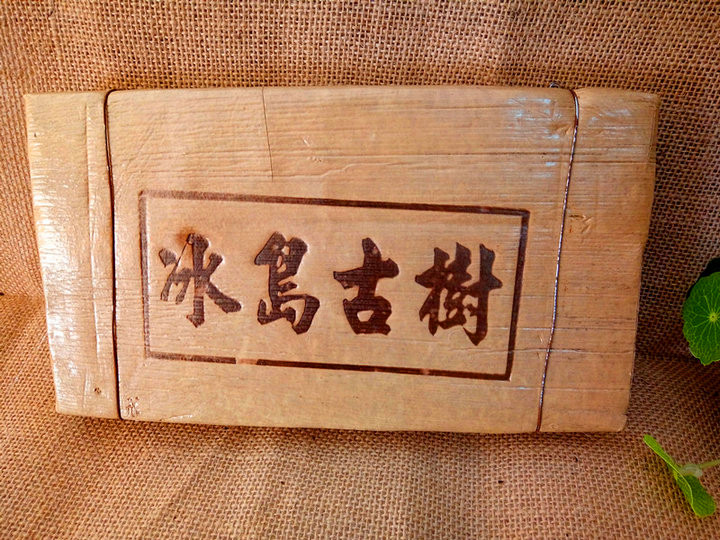 冰島古樹